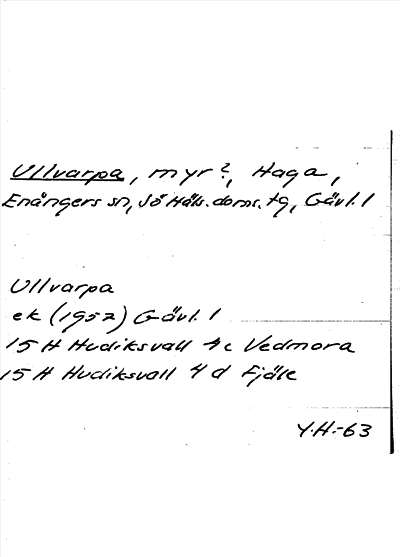 Ullvarpa, myr?, Haga,
Enångers sn, Sö Häls. doms. tg, Gävl. l
Ullvarpa
ek (1957) Gävl. l
15 H Hudiksvall 4 c Vedmora
15 H Hudiksvall 4 d Fjäle
Y.H.-63